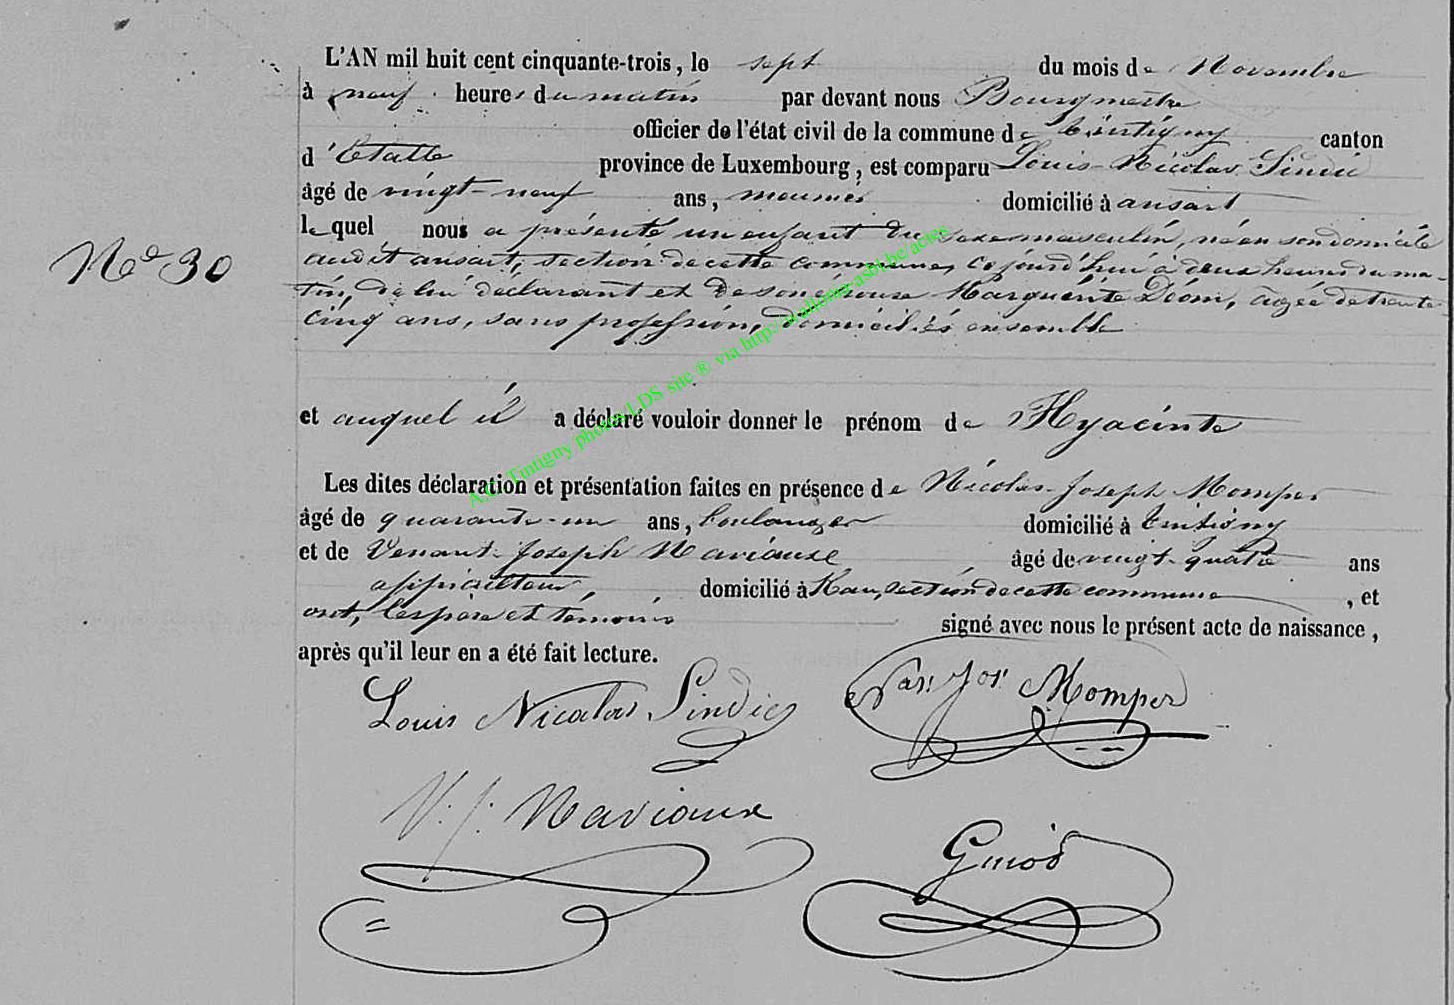 L'AN mil huit cent cinquante-trois, le sept du mois de Novembre
à neuf heures du matin par devant nous Bourgmestre
officier de l'état civil de la commune de Tintigny canton
d'Etalle province de Luxembourg, est comparu Louis-Nicolas Sindic
âgé de vingt-neuf ans, meunier domicilié à ansart
lequel nous a présenté un enfant du sexe masculin, né en son domicile
audit ansart, section de cette commune, cejourd'hui à deux heures du ma-
tin, de lui déclarant et de son épouse Marguerite Déom, agée de trente
cinq ans, sans profession, domiciliés ensemble
N° 30
et auquel il a déclaré vouloir donner le prénom de Hyacinte
Les dites déclaration et présentation faites en présence de Nicolas-Joseph Momper
âgé de quarante-un ans, boulanger domicilié à Tintigny
et de Venant-Joseph Naviaux âgé de vingt-quatre ans
domicilié à Han, section de cette commune, et
ont, les père et témoins signé avec nous le présent acte de naissance,
après qu'il leur en a été fait lecture.
Louis Nicolas Sindic
Jos. Momper
V. J. Naviaux
A.C. Tintigny photos LDS site ® via http://wallonia-asbl.be/actes